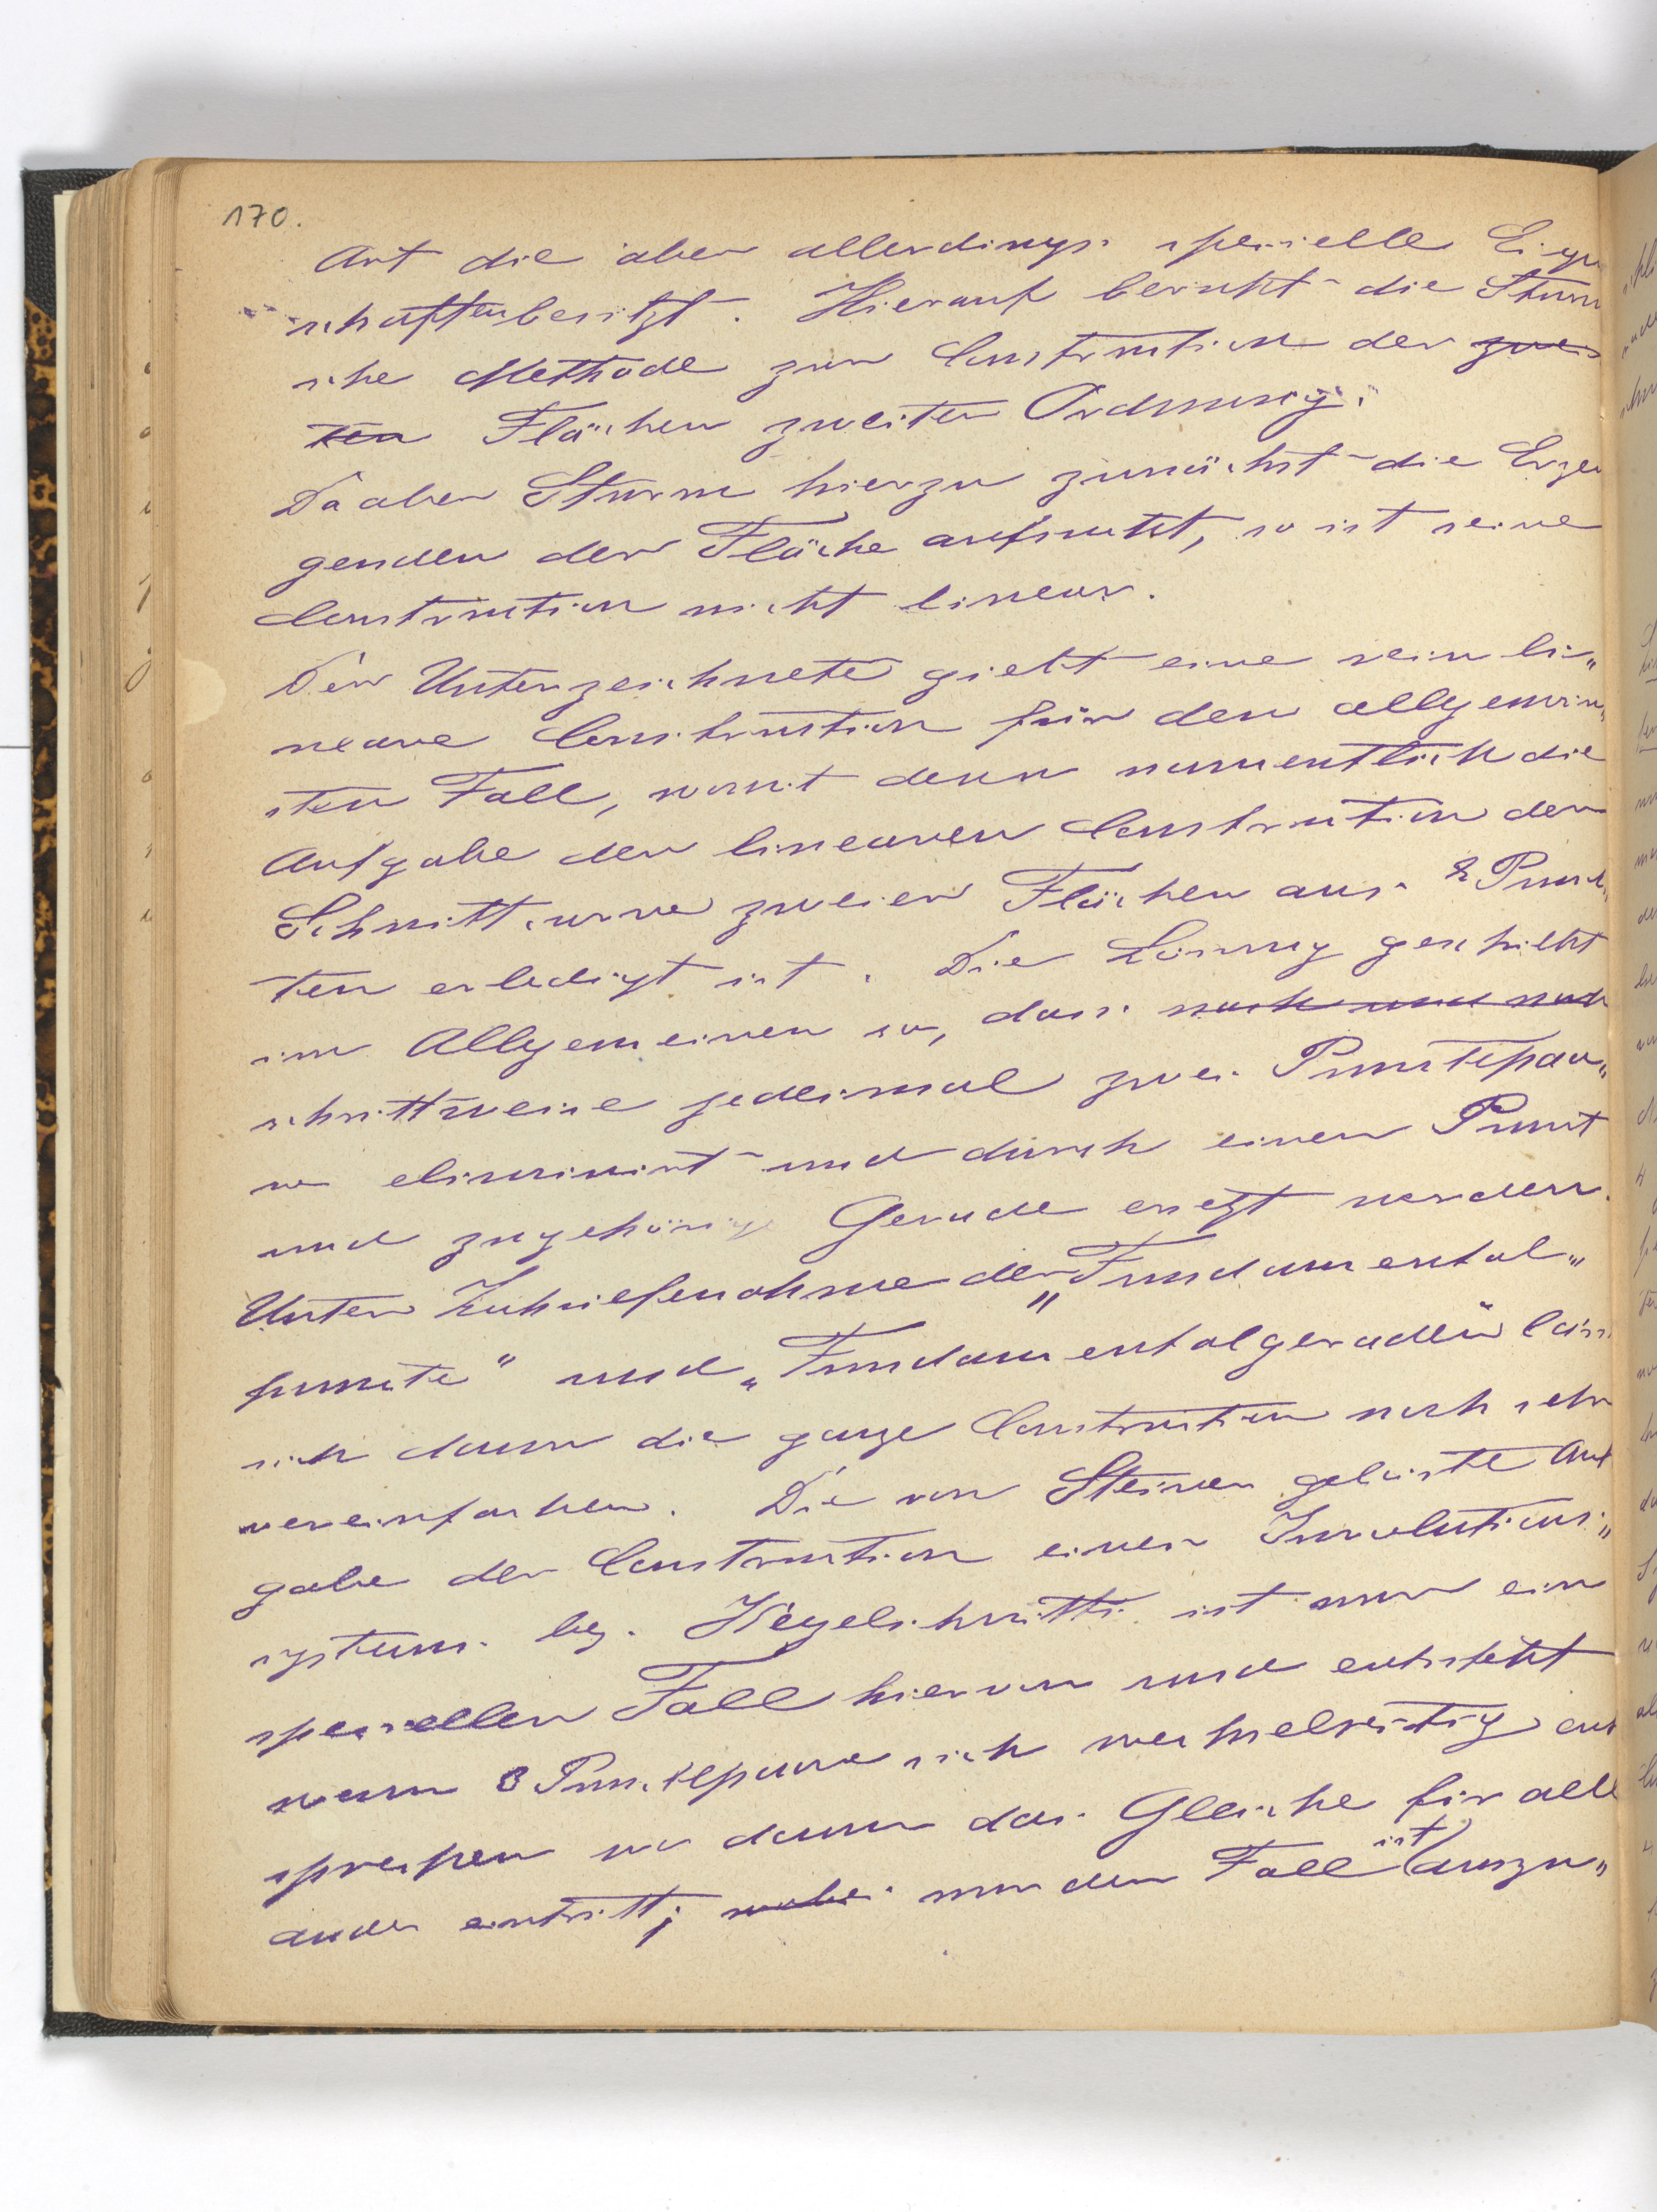 170.
Art die aber allerdings specielle Eigen
schaften besitzt. Hierauf beruht die Sturm
sche Methode zur Construction der zwei
ten Flächen zweiter Ordnung.
Da aber Sturm hierzu zunächst die Erzeu
genden der Fläche aufsucht, so ist seine
Construction nicht linear.
Der Unterzeichnete giebt eine rein li„
neare Construction für den allgemein„
sten Fall, womit denn namentlich die
Aufgabe der linearen Construction der
Schnittcurve zweier Flächen aus 8 Punk„
ten erledigt ist. Die Lösung geschieht
im Allgemeinen so, dass nach und nach
schrittweise jedesmal zwei Punctepaa„
re eliminirt und durch einen Punct
und zugehörige Gerade ersetzt werden.
Unter Zuhilfenahme der „Fundamental„
puncte" und „Fundamentalgeraden" lässt
sich dann die ganze Construction noch sehr
vereinfachen. Die von Steiner gelöste Auf
gabe der Construction eines Involutions„
systems bez. Kegelschnitts ist nur ein
specieller Fall hiervon und entsteht
wenn 3 Punctepaare sich wechselseitig ent
sprechen wo dann das Gleiche für alle
ander eintritt; wobei nur der Fall ist auszu„